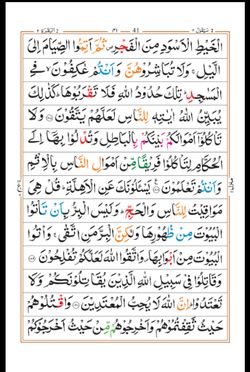 الْخَيْطِ الْاَسْوَدِ مِنَ الْفَجْرِ ثُمَّ اَتِمُّوا الصِّيَامَ اِلَى
الَّيْلِ ۚ وَلَا تُبَاشِرُوْهُنَّ وَاَنْتُمْ عٰكِفُوْنَ ۙ فِي
الْمَسٰجِدِ ؕ تِلْكَ حُدُوْدُ اللّٰهِ فَلَا تَقْرَبُوْهَا ؕ كَذٰلِكَ
يُبَيِّنُ اللّٰهُ اٰيٰتِهٖ لِلنَّاسِ لَعَلَّهُمْ يَتَّقُوْنَ ۝۱۸۷ وَلَا
تَاْكُلُوْٓا اَمْوَالَكُمْ بَيْنَكُمْ بِالْبَاطِلِ وَتُدْلُوْا بِهَآ اِلَى
الْحُكَّامِ لِتَاْكُلُوْا فَرِيْقًا مِّنْ اَمْوَالِ النَّاسِ بِالْاِثْمِ
وَاَنْتُمْ تَعْلَمُوْنَ ۝۱۸۸ يَسْـَٔلُوْنَكَ عَنِ الْاَهِلَّةِ ؕ قُلْ هِيَ
مَوَاقِيْتُ لِلنَّاسِ وَالْحَجِّ ؕ وَلَيْسَ الْبِرُّ بِاَنْ تَاْتُوا
الْبُيُوْتَ مِنْ ظُهُوْرِهَا وَلٰكِنَّ الْبِرَّ مَنِ اتَّقٰى ۚ وَاْتُوا
الْبُيُوْتَ مِنْ اَبْوَابِهَا ۪ وَاتَّقُوا اللّٰهَ لَعَلَّكُمْ تُفْلِحُوْنَ ۝۱۸۹
وَقَاتِلُوْا فِيْ سَبِيْلِ اللّٰهِ الَّذِيْنَ يُقَاتِلُوْنَكُمْ وَلَا
تَعْتَدُوْا ؕ اِنَّ اللّٰهَ لَا يُحِبُّ الْمُعْتَدِيْنَ ۝۱۹۰ وَاقْتُلُوْهُمْ
حَيْثُ ثَقِفْتُمُوْهُمْ وَاَخْرِجُوْهُمْ مِّنْ حَيْثُ اَخْرَجُوْكُمْ